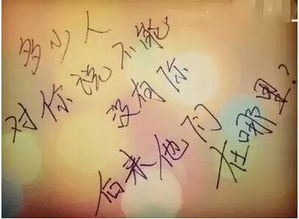 多少人
对你说不能
没有你
后来他们
在哪里?